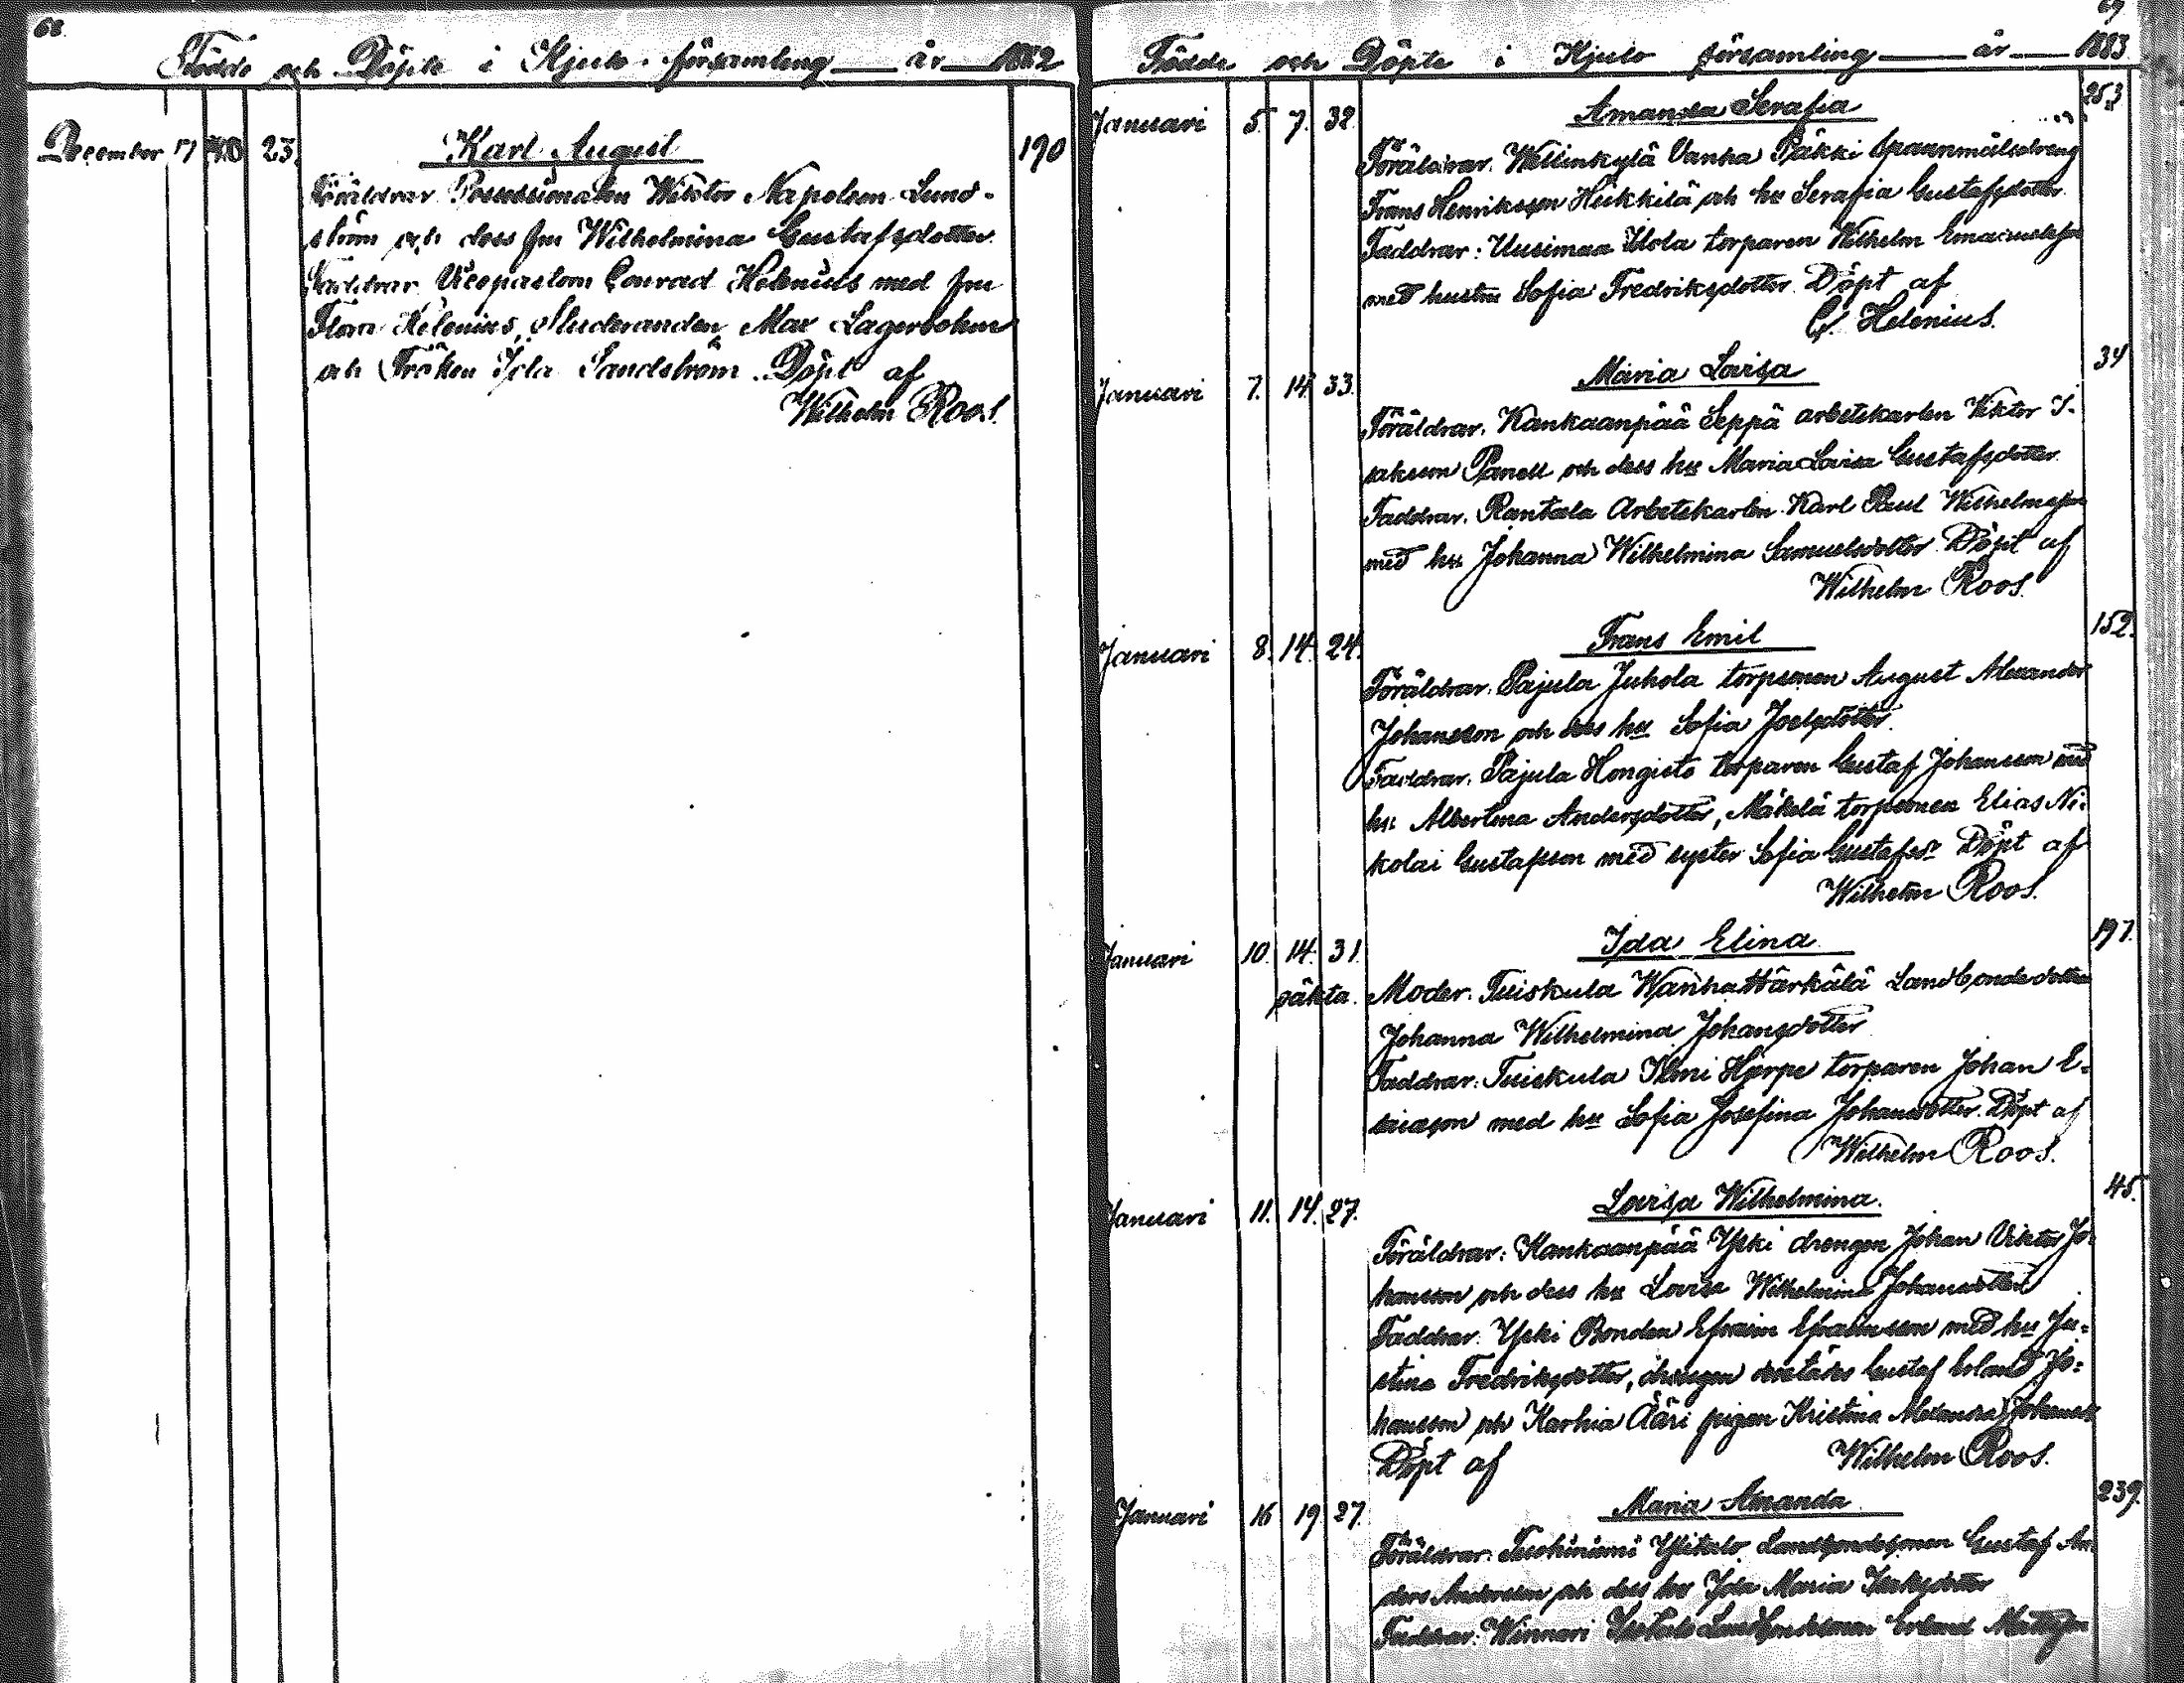 68.
Födde och Döpte i Kjulo församling år 1882
December 17 23. Karl August 190
Föräldrar Possessionaten Wiktor Napoleon Lund-
ström och dess fru Wilhelmina Gustafsdotter.
Faddrar Vicepastorn Conrad Helenius med fru
Flora Helenius, Studeranden Max Lagerbohm
och Fröken Ida Sandström. Döpt af
Wilhelm Roos.
69
Födde och Döpte i Kjulo församling år 1883
Januari 5. 7. 32. Amanda Serafia 253
Föräldrar. Wellinkylä Vanha Päkki spannmålsdreng
Frans Henriksson Hükkilä och hu Serafia Gustafsdotter.
Faddrar: Uusimaa torparen Wilhelm Emanuelsson
med hustru Sofia Fredriksdotter. Döpt af
C. Helenius.
Januari 7. 14. 33. Maria Lovisa 34
Föräldrar. Kankaanpää Seppä arbetskarlen Viktor I-
saksson Panell och dess hu Maria Lovisa Gustafsdotter.
Faddrar. Rantala Arbetskarlen Karl Paul Wilhelmsson
med hu Johanna Wilhelmina Samuelsdotter. Döpt af
Wilhelm Roos.
Januari 8. 14. 24. Frans Emil 152.
Föräldrar. Pajula Juhola torpsonen August Alexander
Johansson och dess hu Sofia Joelsdotter.
Faddrar. Pajula Hongisto torparen Gustaf Johansson med
hu Albertina Andersdotter, Mäkelä torpsonen Elias Ni-
kolai Gustafsson med syster Sofia Gustafsdr Döpt af
Wilhelm Roos.
Januari 10. 14. 31. Ida Elina 197.
oäkta. Moder. Tuiskula Wanha Härkälä Landbondedotter
Johanna Wilhelmina Johansdotter
Faddrar. Tuiskula Ilmi Hjerpe torparen Johan E-
riksson med hu Sofia Josefina Johansdotter. Döpt af
Wilhelm Roos.
Januari 11. 14. 27. Lovisa Wilhelmina. 45.
Föräldrar: Kankaanpää Yski drengen Johan Viktor Jo-
hansson och dess hu Lovisa Wilhelmina Johansdotter
Faddrar. Yski Bonden Efraim Efraimsson med hu Ju-
stina Fredriksdotter, drengen derstädes Gustaf Erland Jo-
hansson och Karhia Ääri pigan Kristina Alexandra Johansdr
Döpt af Wilhelm Roos.
Januari 16 19 27. Maria Amanda 239.
Föräldrar. Tuohiniemi Ylitalo Landbondesonen Gustaf An-
ders Andersson och dess hu Ida Maria Isaksdotter
Faddrar: Winnari Landbondesonen Erland Mattsson